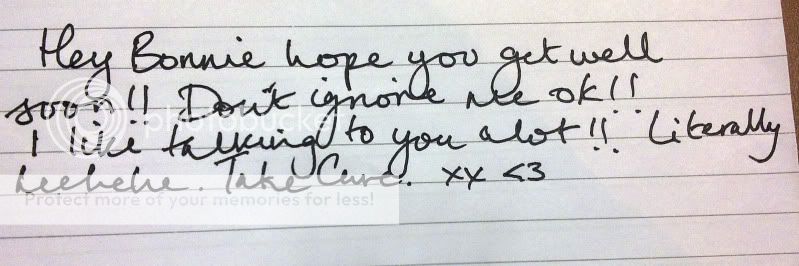 Hey Bonnie hope you get well
soon!! Don't ignore me ok!!
I like talking to you alot!! Literally
heehehe. Take Care. xx <3
photobucket
Protect more of your memories for less!